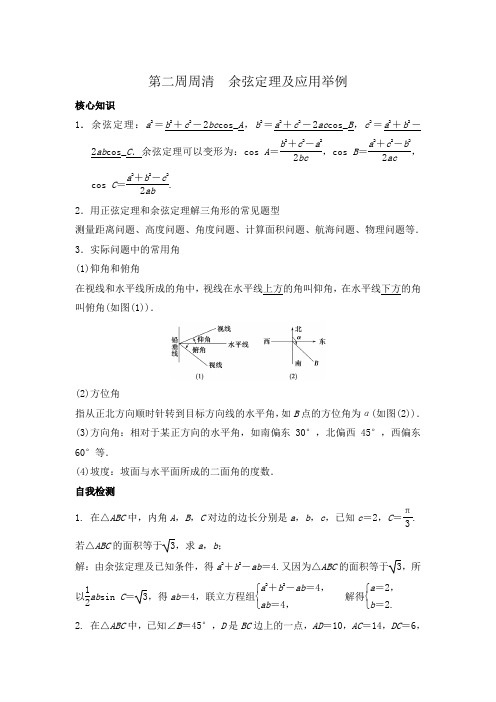 第二周周清　余弦定理及应用举例
核心知识
1．余弦定理：a²＝b²＋c²－2bccos_A，b²＝a²＋c²－2accos_B，c²＝a²＋b²－
2abcos_C．余弦定理可以变形为：cos A＝(b²＋c²－a²)/(2bc)，cos B＝(a²＋c²－b²)/(2ac)，
cos C＝(a²＋b²－c²)/(2ab).
2．用正弦定理和余弦定理解三角形的常见题型
测量距离问题、高度问题、角度问题、计算面积问题、航海问题、物理问题等．
3．实际问题中的常用角
(1)仰角和俯角
在视线和水平线所成的角中，视线在水平线上方的角叫仰角，在水平线下方的角
叫俯角(如图(1))．
铅垂线 视线 仰角 俯角 水平线 视线 (1)
北 α 西 东 南 B (2)
(2)方位角
指从正北方向顺时针转到目标方向线的水平角，如B点的方位角为α(如图(2))．
(3)方向角：相对于某正方向的水平角，如南偏东30°，北偏西45°，西偏东
60°等．
(4)坡度：坡面与水平面所成的二面角的度数．
自我检测
1. 在△ABC中，内角A，B，C对边的边长分别是a，b，c，已知c＝2，C＝π/3.
若△ABC的面积等于√3，求a，b；
解：由余弦定理及已知条件，得a²＋b²－ab＝4.又因为△ABC的面积等于√3，所
以1/2absin C＝√3，得ab＝4，联立方程组{a²＋b²－ab＝4，ab＝4，　解得{a＝2，b＝2.
2. 在△ABC中，已知∠B＝45°，D是BC边上的一点，AD＝10，AC＝14，DC＝6，